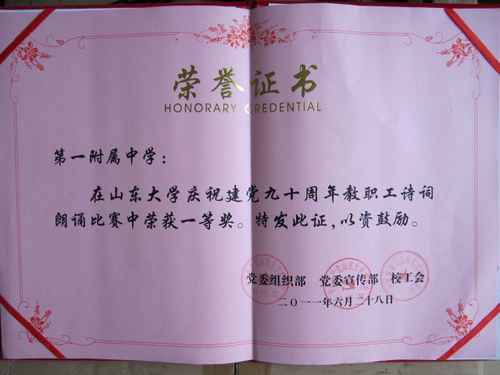 荣誉证书
HONORARY CREDENTIAL
第一附属中学：
在山东大学庆祝建党九十周年教职工诗词
朗诵比赛中荣获一等奖。特发此证，以资鼓励。
党委组织部 党委宣传部 校工会
二〇一一年六月二十八日